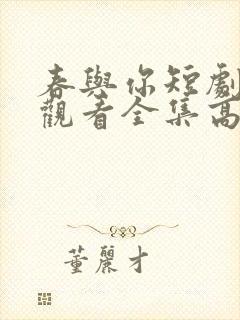 春與你短劇
觀看全集高
董麗才